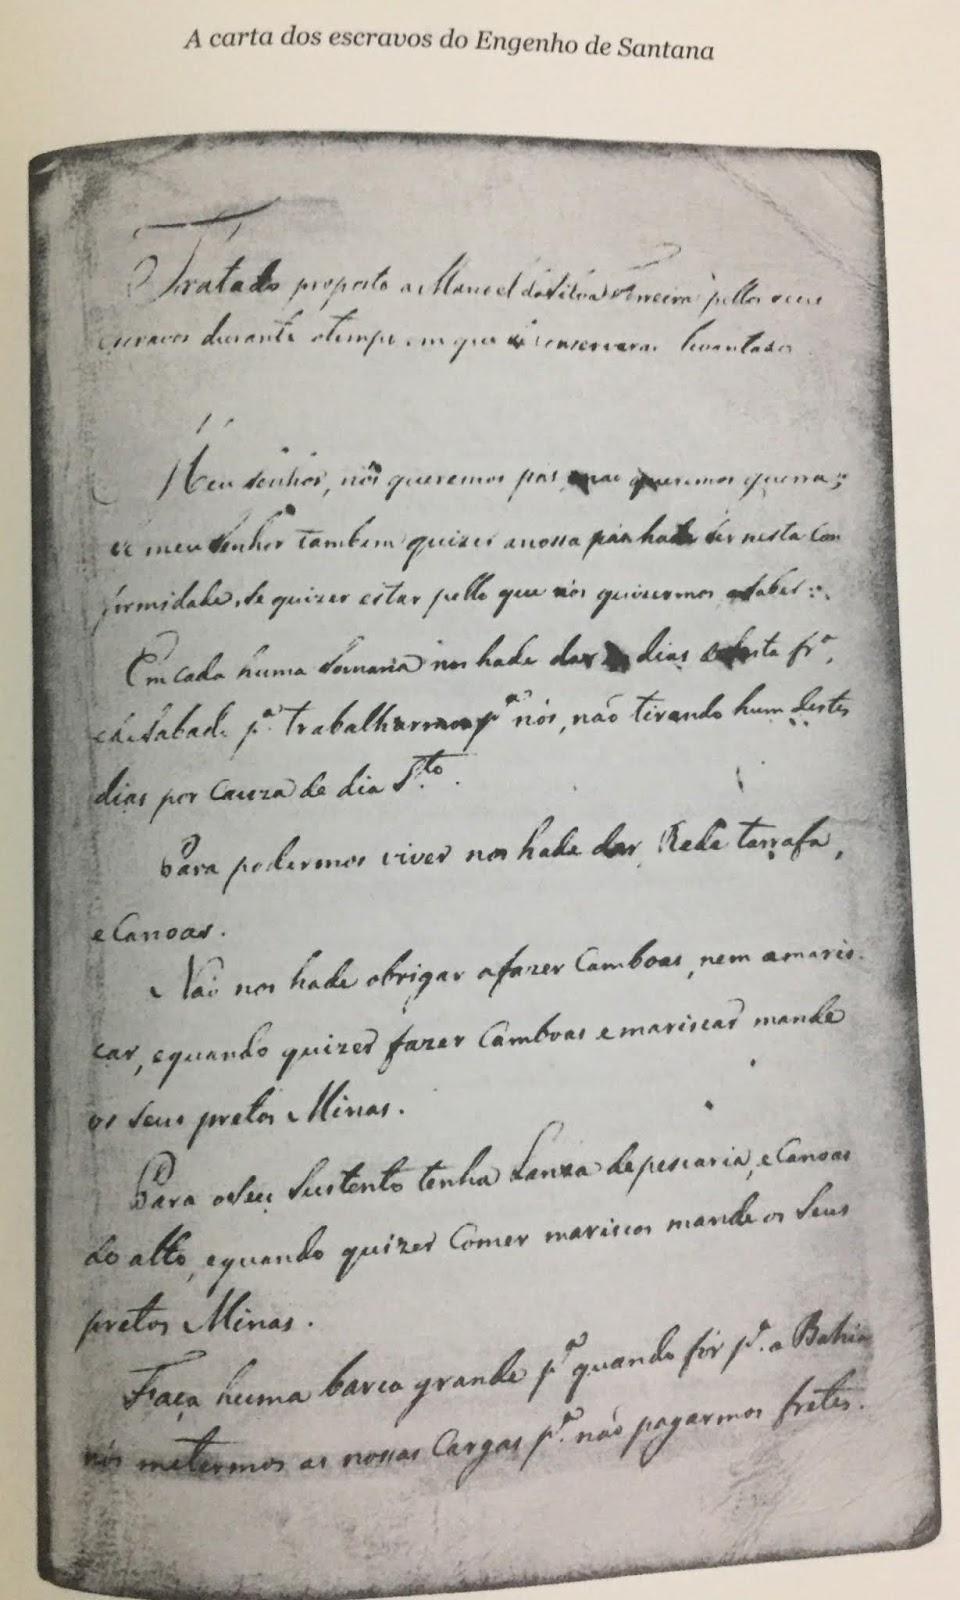 A carta dos escravos do Engenho de Santana
Tratado proposto a Manoel da Silva Ferreira pellos seus
escravos durante o tempo em que se conservarao levantados
Meu Senhor, nós queremos pás, e nao queremos guerra;
se meu Senhor tambem quizer a nossa pás ha de ser nesta con
formidade, se quizer estar pello que nós quizermos a saber:.
Em cada huma Semana nos hade dar os dias de Sesta frª,
e de Sabado pª trabalharmos pª nós, não tirando hum destes
dias por cauza de dia Sto.
Para podermos viver nos hade dar Rede tarrafa,
e Canoas.
Não nos hade obrigar a fazer Camboas, nem a maris
car, e quando quizer fazer Camboas e mariscar mande
os seus pretos Minas.
Para o Seu Sustento tenha Lanxa de pescaria, e Canoas
do alto, e quando quizer Comer mariscos mande os Seus
pretos Minas.
Faça huma barca grande pª quando fór pª a Bahia
nós metermos as nossas Cargas pª não pagarmos fretes.